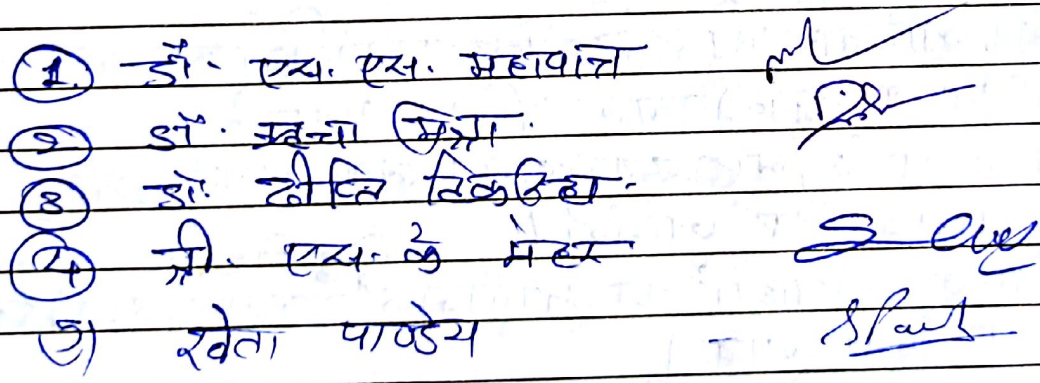 1. डॉ. एस. एस. महापात्र
2. डॉ. ऋचा मिश्रा.
3. डॉ. दीप्ति तिकरिहा.
4. श्री. एस. के मेहर
5) श्वेता पाण्डेय